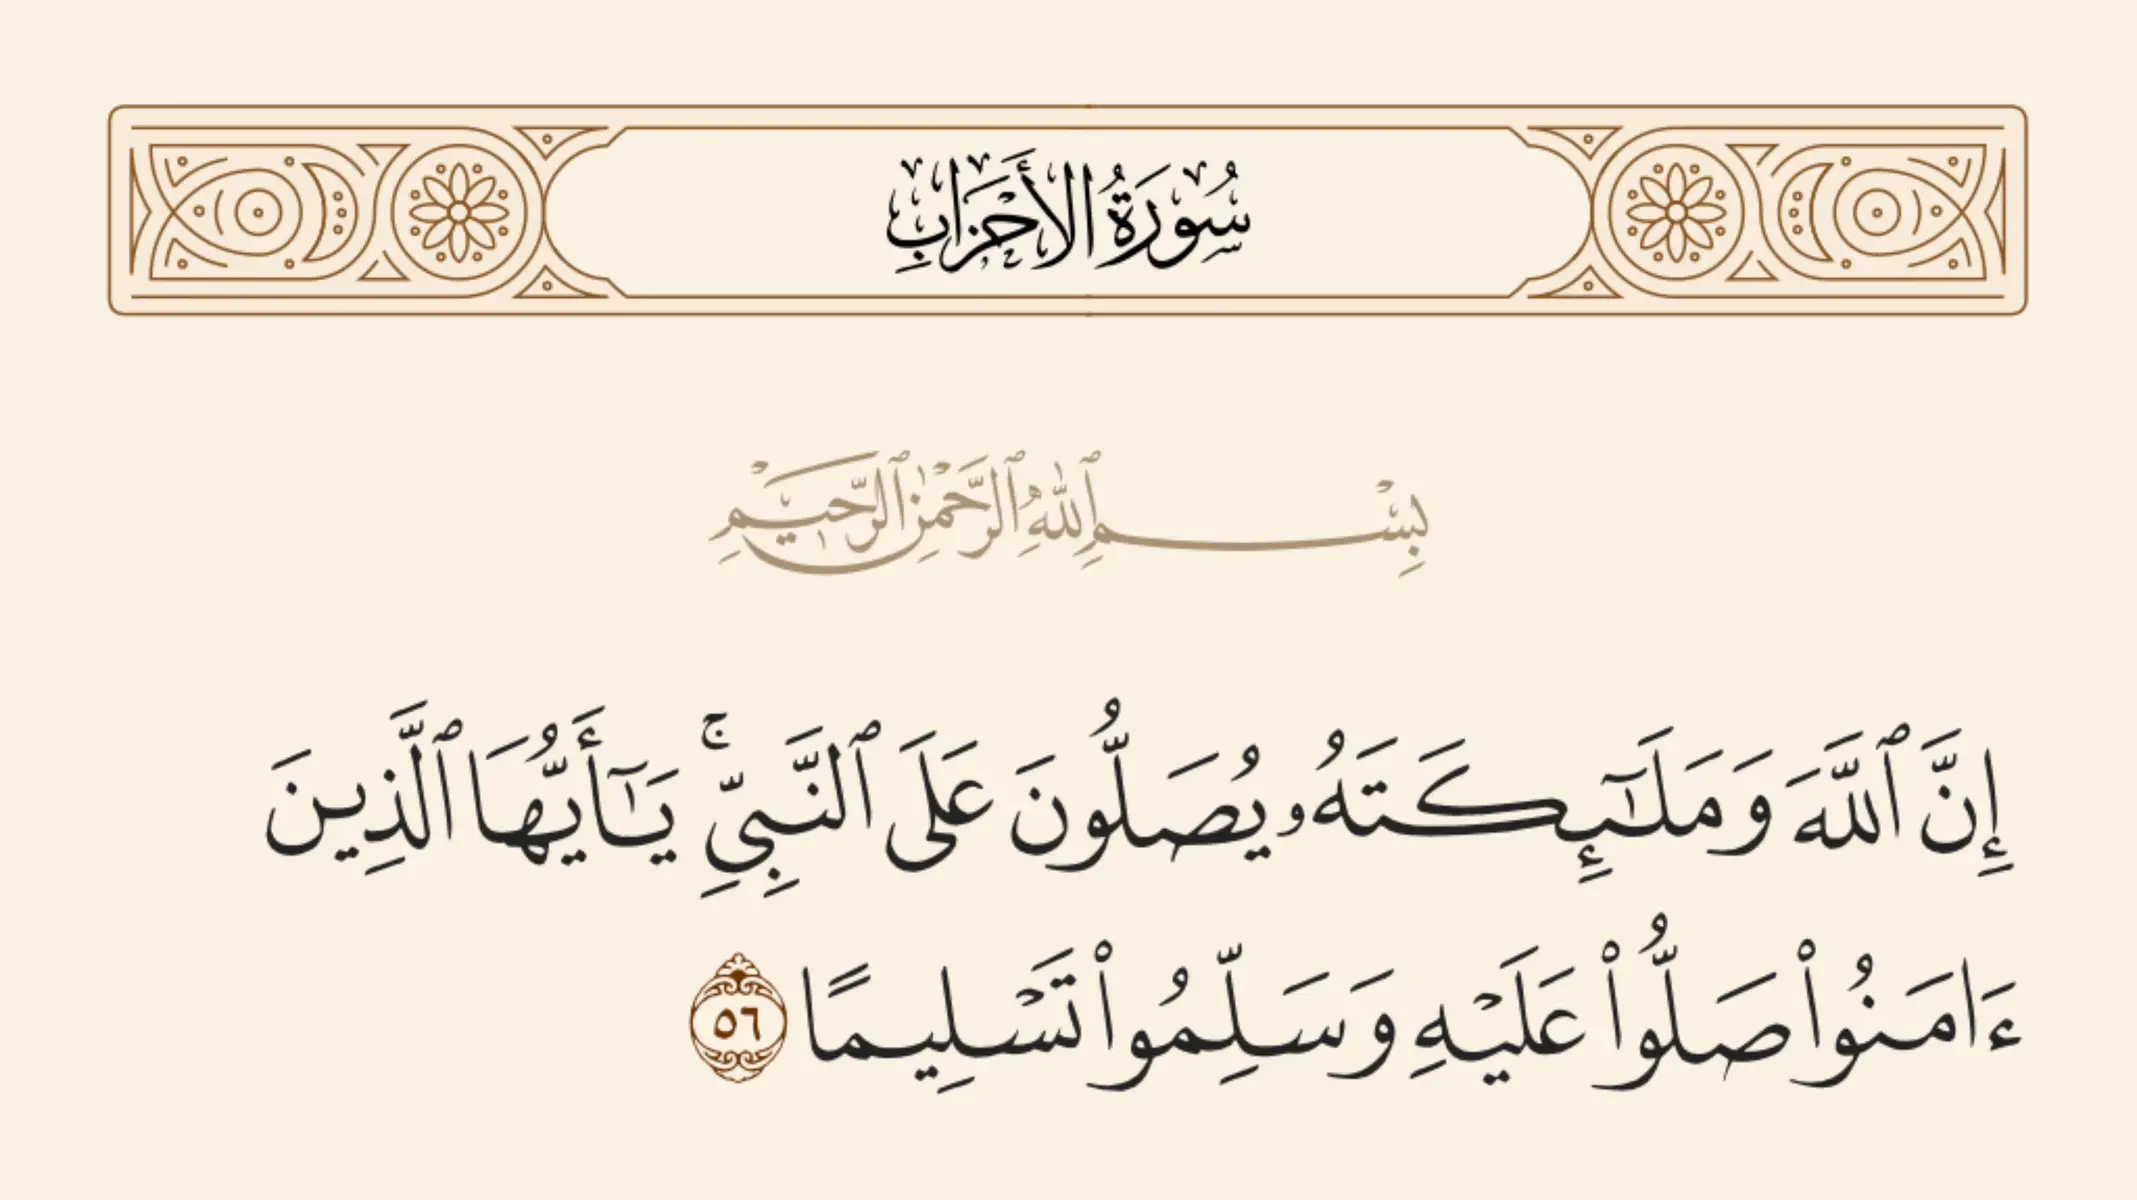 سُورَةُ الأَحْزَابِ
بِسْمِ ٱللَّهِ ٱلرَّحْمَٰنِ ٱلرَّحِيمِ
إِنَّ ٱللَّهَ وَمَلَٰٓئِكَتَهُۥ يُصَلُّونَ عَلَى ٱلنَّبِىِّۚ يَٰٓأَيُّهَا ٱلَّذِينَ
ءَامَنُوا۟ صَلُّوا۟ عَلَيْهِ وَسَلِّمُوا۟ تَسْلِيمًا ٥٦